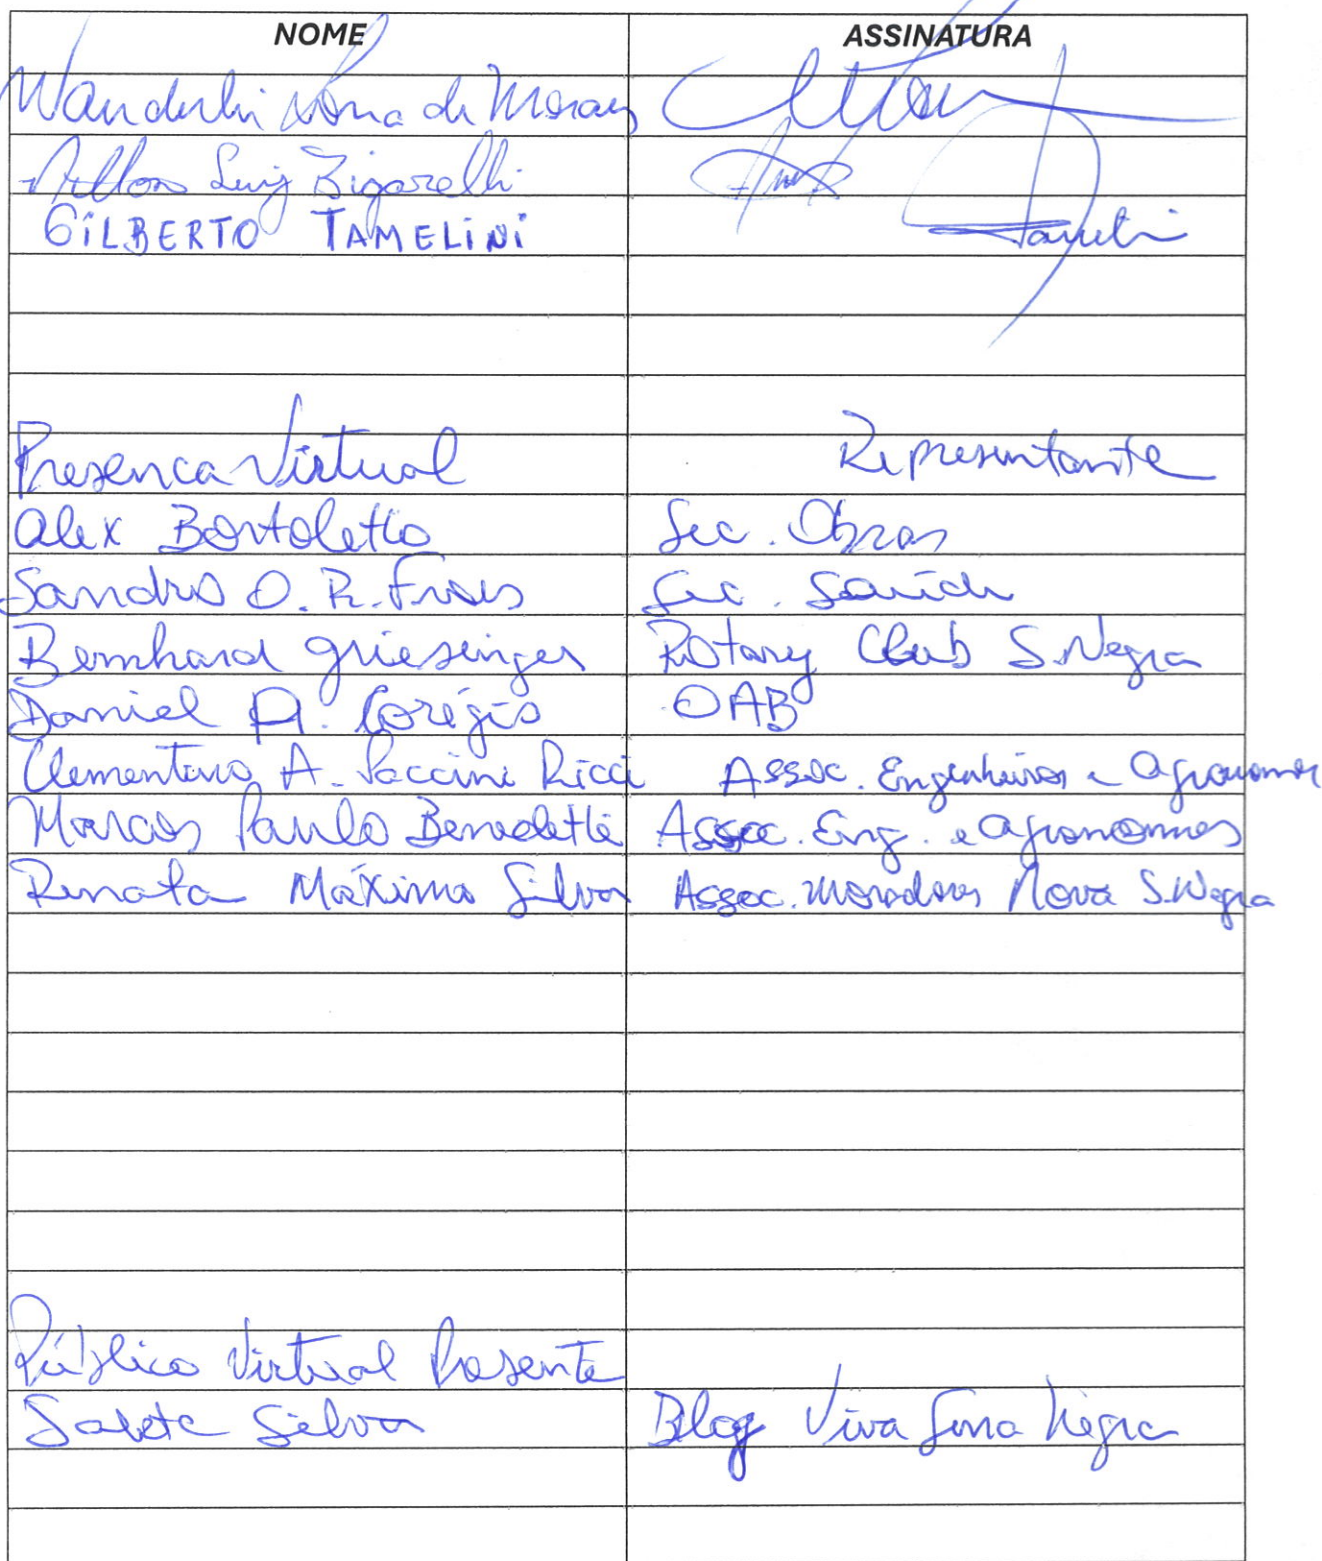 NOME ASSINATURA
Wanderlei de Moraes
Luiz Bigarelli
GILBERTO TAMELINI Tamelini
Presença Virtual Representante
Alex Bortoletto Sec. Obras
Sandro O. R. Sec. Saúde
Bernhard Griesinger Rotary Club S. Negra
Daniel A. OAB
Clementino A. Saccini Ricci Assoc. Engenheiros e Agronomos
Marcos Paulo Benedetti Assoc. Eng. e Agronomos
Renata Máximo Silva Assoc. Moradores Nova S. Negra
Público Virtual Presente
Salete Silva Blog Viva Serra Negra